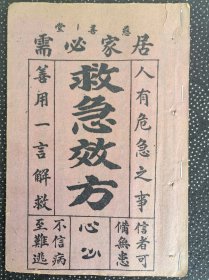 慈善堂
居家必需
人有危急之事
信者可
備無患
救急效方
善用一言解救
不信病
至難逃